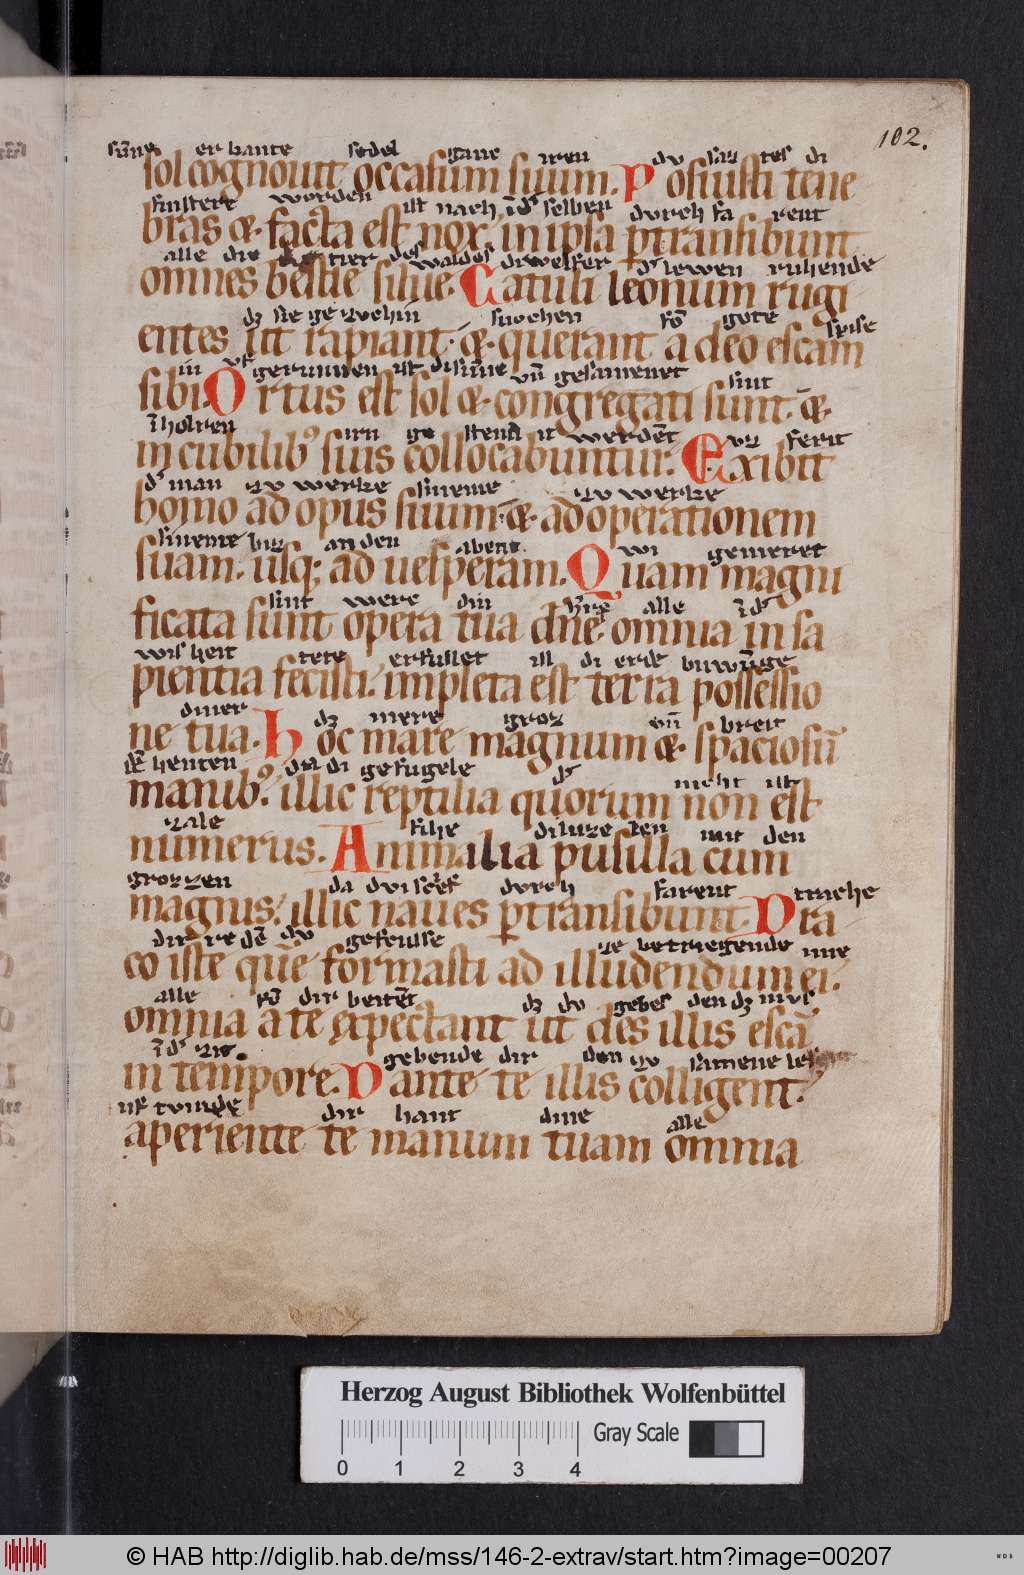 102.
sūne er kante sedel gane iren du saz tes di
sol cognouit occasum suum. Posuisti tene
finstere worden ist nach īd' selben durch fa rent
bras & facta est nox. in ipsa ptransibunt
alle die tier des waldes diwelfer d' lewen ruhende
omnes bestie silue. Catuli leonum rugi
dz sie ge zvchin suochen fō gote spise
entes ut rapiant. & querant a deo escam
in vf gerunnen ist disūne vn̄ gesamenet sint
sibi. Ortus est sol & congregati sunt. &
ī holren irn ge stend it werdēt vz ferit
in cubilib' suis collocabuntur. Exibit
d' man zv werke sineme zv werke
homo ad opus suum. & ad operationem
sineme biz an den abent. wi gemeret
suam. usq; ad uesperam. Quam magni
sint were din h're alle ī d'
ficata sunt opera tua dn̄e. omnia in sa
wisheit tete erfullet ist di erde
pientia fecisti. impleta est terra possessio
diner dz mere groz vn̄ breit
ne tua. Hoc mare magnum & spaciosū
henten da di gefugele d' nicht ist
manib'. illic reptilia quorum non est
zale fihe mit den
numerus. Animalia pusilla cum
grozzen da durch farent trache
magnis. illic naues ptransibunt. Dra
dirre dē du ze betriegende ime
co iste quē formasti ad illudendum ei.
alle fō dir beitēt dz du gebes den dz mvs
omnia a te expectant ut des illis escā
ī d' zit. gebende dir den zv samene
in tempore. Dante te illis colligent.
vf tuinde dir hant dine alle
aperiente te manum tuam omnia
Herzog August Bibliothek Wolfenbüttel
Gray Scale
0 1 2 3 4
© HAB http://diglib.hab.de/mss/146-2-extrav/start.htm?image=00207
WDB